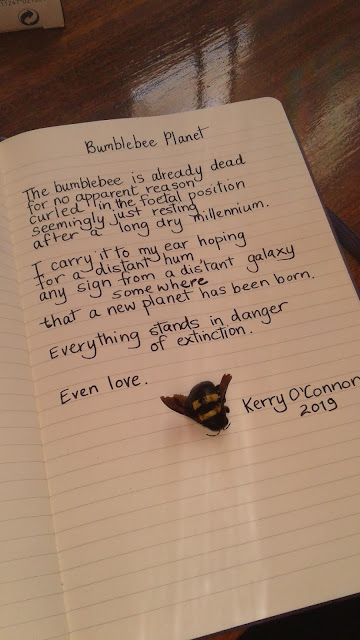 Bumblebee Planet
The bumblebee is already dead
for no apparent reason
curled in the foetal position
seemingly just resting
after a long dry millennium.
I carry it to my ear hoping
for a distant hum
any sign from a distant galaxy
somewhere
that a new planet has been born.
Everything stands in danger
of extinction.
Even love.
Kerry O'Connor
2019